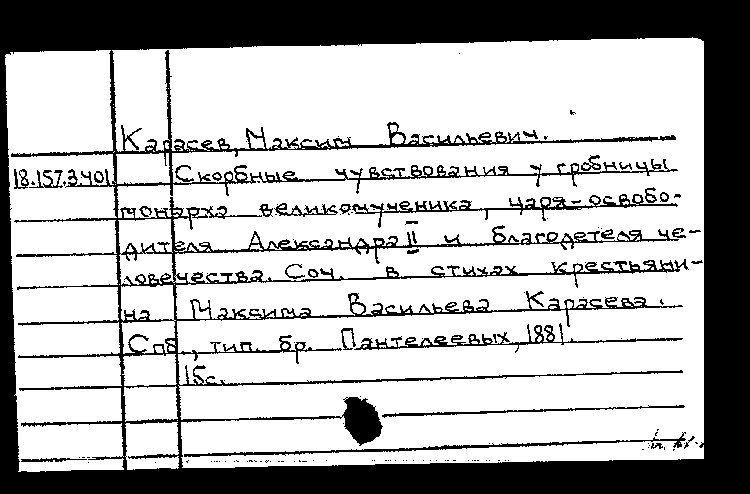 Карасев, Максим Васильевич.
18.157.3.401. Скорбные чувствования у гробницы
монарха великомученика, царя-освобо-
дителя Александра II и благодетеля че-
ловечества. Соч. в стихах крестьяни-
на Максима Васильева Карасева.
Спб., тип. бр. Пантелеевых, 1881.
15с.